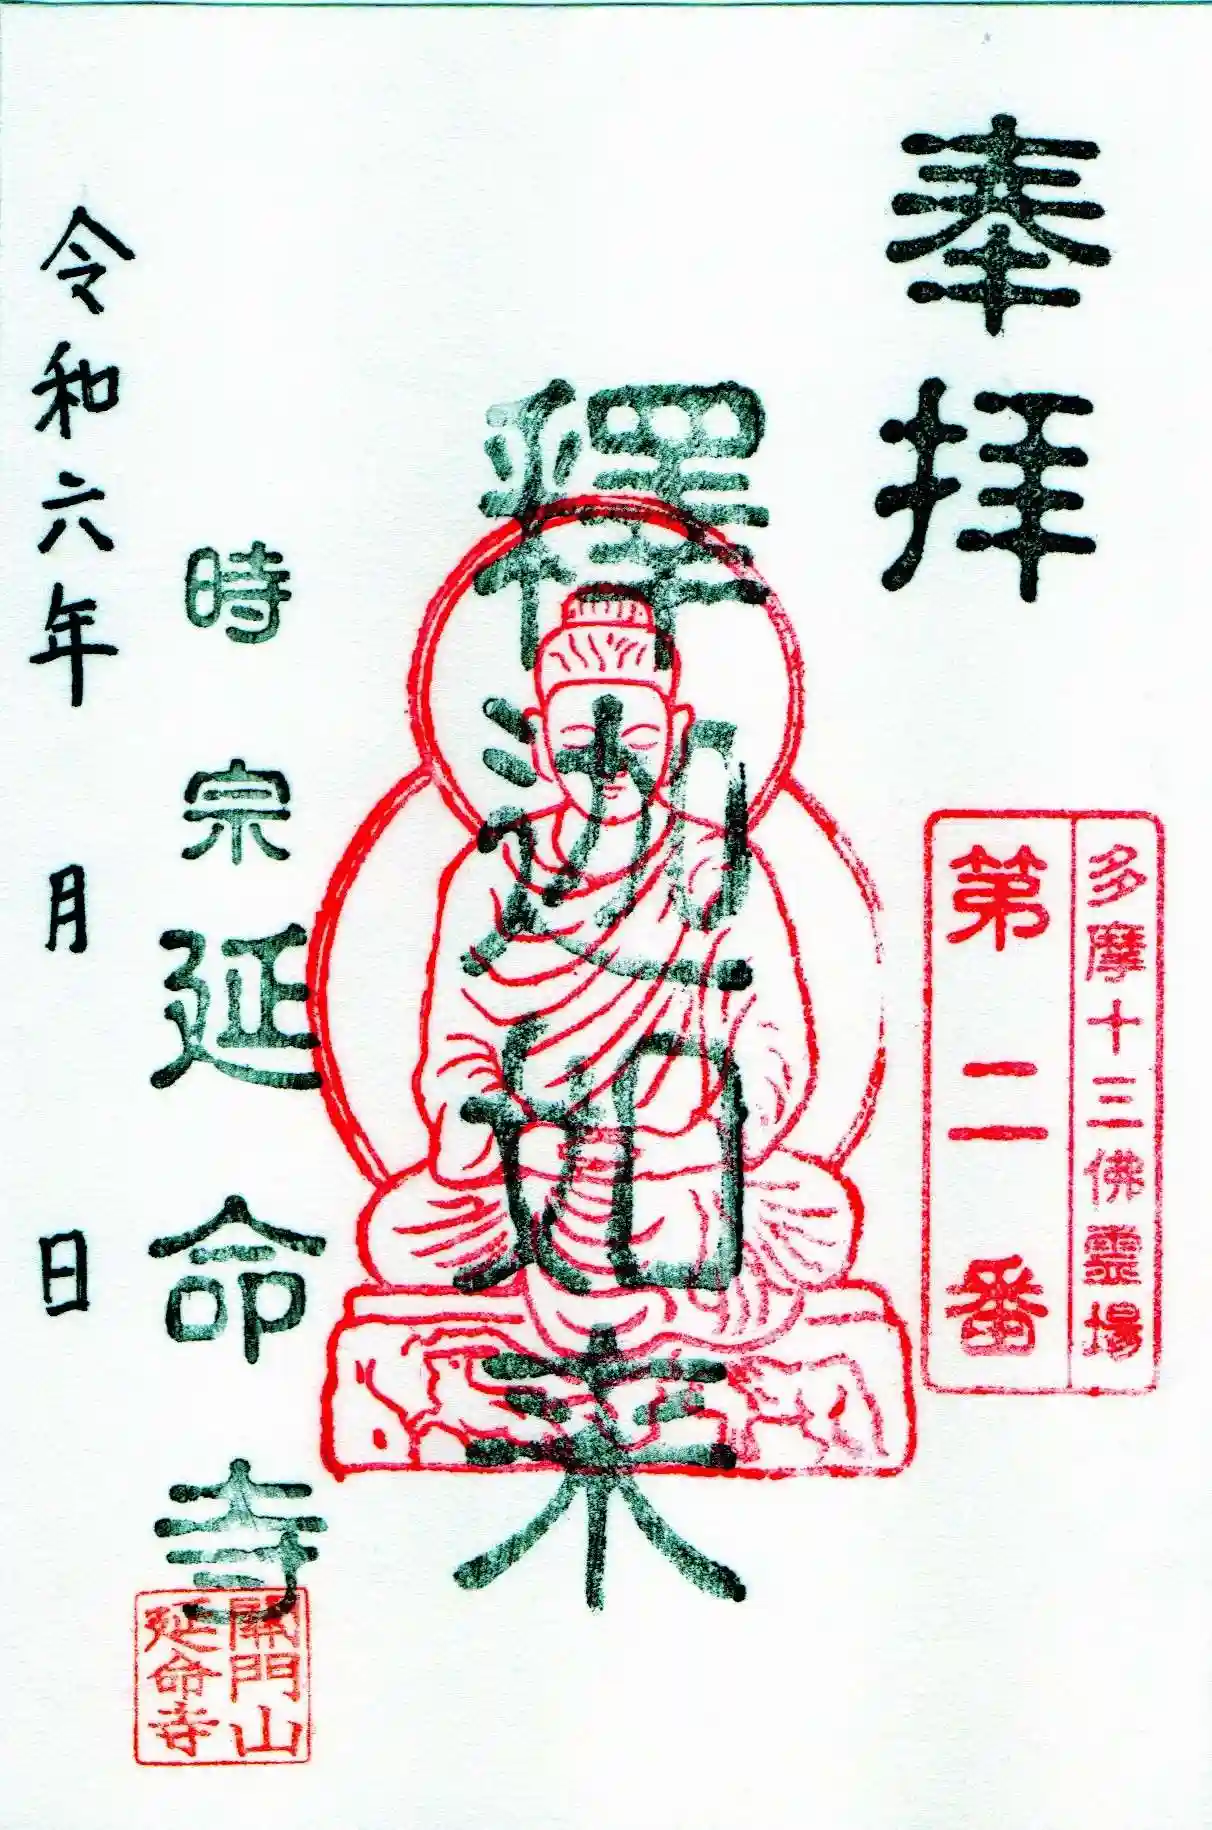 奉拝
多摩十三佛靈場
第二番
釋迦如来
時宗延命寺
關門山
延命寺
令和六年 月 日